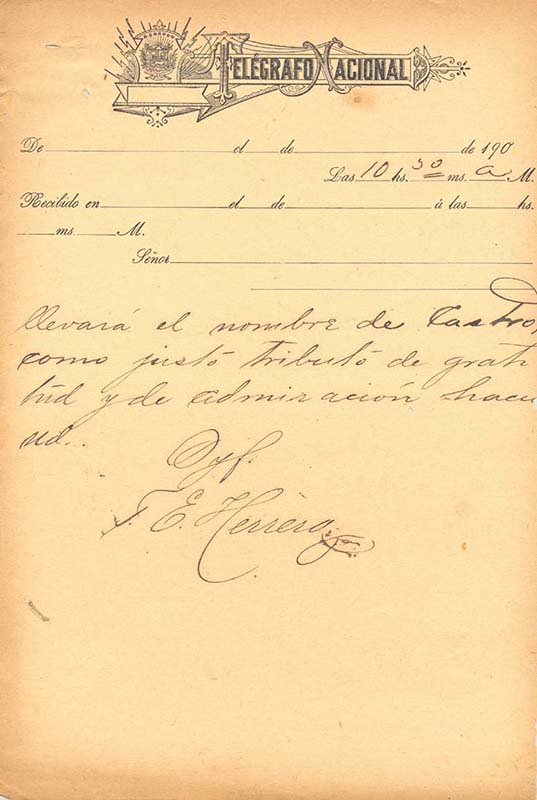 TELÉGRAFO NACIONAL
De el de de 190
Las 10 hs. 30 ms. a M.
Recibido en el de á las hs.
ms M.
Señor
llevará el nombre de Castro,
como justó tributó de grati
túd y de admiración hacia
ud..
T. E. Herrera